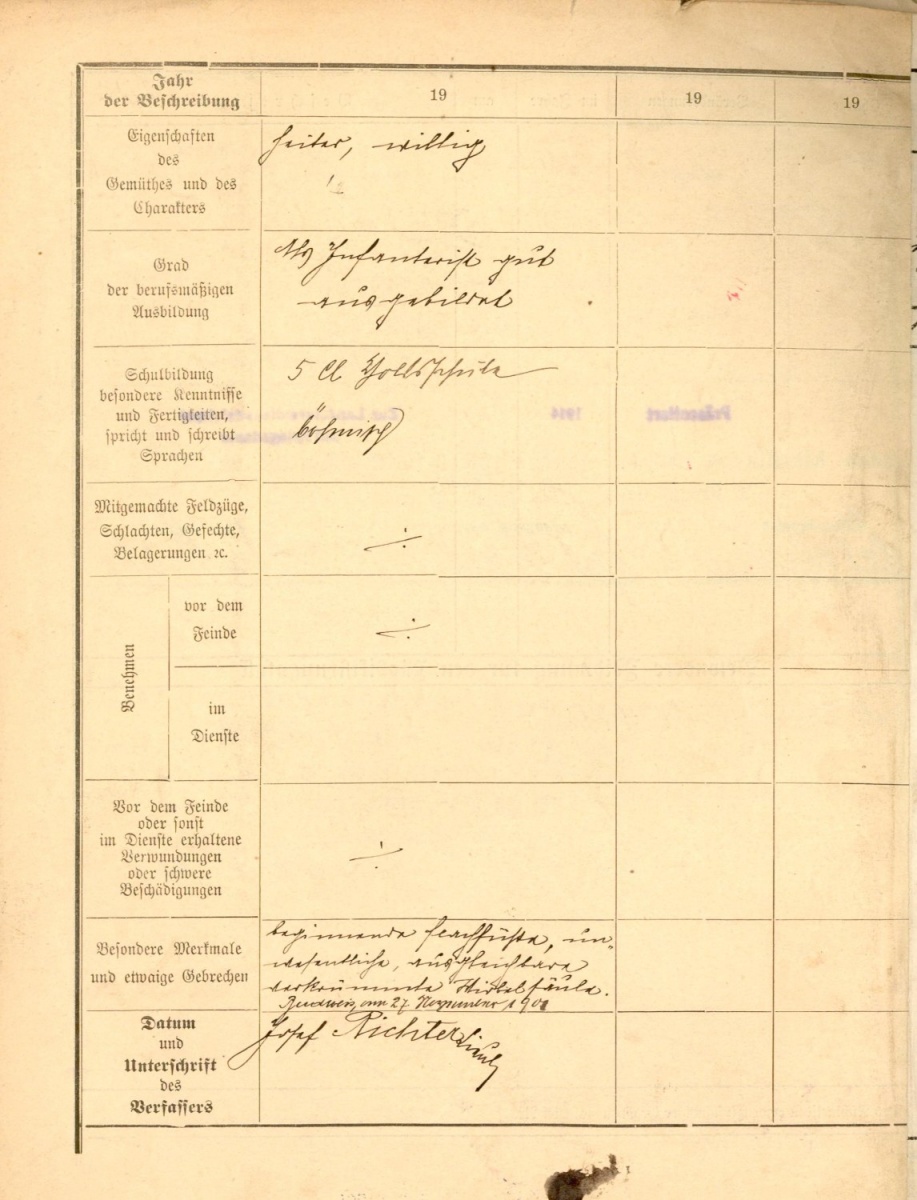 Jahr
der Beschreibung
19
19
19
Eigenschaften
des
Gemüthes und des
Charakters
heiter, willig
Grad
der berufsmäßigen
Ausbildung
Als Infanterist gut
ausgebildet
Schulbildung
besondere Kenntnisse
und Fertigkeiten,
spricht und schreibt
Sprachen
5 Cl Volksschule
böhmisch
Präsentiert
1914
Mitgemachte Feldzüge,
Schlachten, Gefechte,
Belagerungen ꝛc.
÷
Benehmen
vor dem
Feinde
÷
im
Dienste
Vor dem Feinde
oder sonst
im Dienste erhaltene
Verwundungen
oder schwere
Beschädigungen
÷
Besondere Merkmale
und etwaige Gebrechen
beginnende Flachfüße, un-
wesentliche, ausgleichbare
verkrümmte Wirbelsäule.
Budweis, am 27. November 1901
Datum
und
Unterschrift
des
Verfassers
Josef Richter